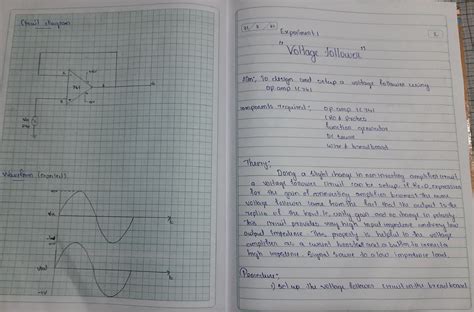 Circuit diagram
741
Waveform (expected)
Experiment 1
1
"Voltage follower"
Aim: To design and setup a voltage follower using
op.amp IC 741
components required:
op.amp IC 741
CRO & probes
function generator
DC source
Wire & breadboard
Theory:
Doing a slight change in non inverting amplifier circuit
a voltage follower circuit can be setup, if
for the gain of noninverting amplifier becomes
voltage follower comes from the fact that the output is the
replica of the input i.e, unity gain and no change in polarity
This circuit provides very high input impedance and very low
output impedance. This property is helpful to the voltage
amplifier as a current booster and a buffer to connect a
high impedance signal source to a low impedance load.
Procedure:
1) set up the voltage follower circuit on the breadboard